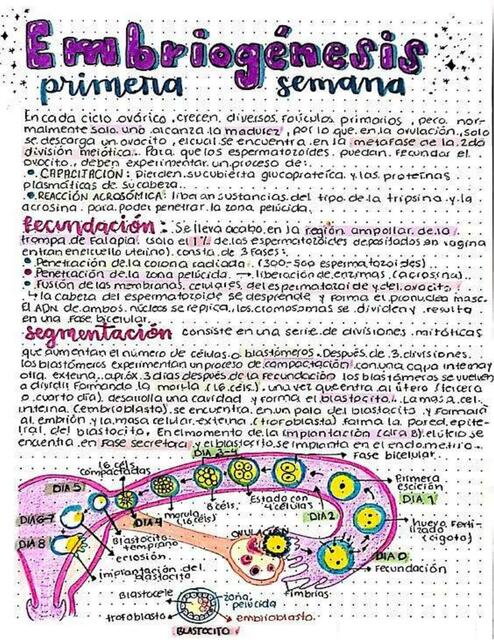 Embriogénesis
primera semana
En cada ciclo ovárico, crecen diversos folículos primarios, pero nor-
malmente solo uno alcanza la madurez, por lo que en la ovulación, solo
se descarga un ovocito, el cual se encuentra en la metafase de la 2da
división meiótica. Para que los espermatozoides puedan fecundar el
ovocito, deben experimentar un proceso de:
• CAPACITACIÓN: Pierden su cubierta glucoproteica y las proteínas
plasmáticas de su cabeza.
• REACCIÓN ACROSÓMICA: liberan sustancias del tipo de la tripsina y la
acrosina para poder penetrar la zona pelúcida.
fecundación: Se lleva acabo en la región ampollar de la
trompa de Falopio (solo el 1% de los espermatozoides depositados en vagina
entran en cuello uterino), consta de 3 fases:
• Penetración de la corona radiada. (300-500 espermatozoides)
• Penetración de la zona pelúcida. → liberación de enzimas (acrosina)
• Fusión de las membranas celulares del espermatozoide y del ovocito
↳ la cabeza del espermatozoide se desprende y forma el pronúcleo masc.
El ADN de ambos núcleos se replica, los cromosomas se dividen y resulta
en una fase bicelular.
segmentación consiste en una serie de divisiones mitóticas
que aumentan el número de células o blastómeros. Después de 3 divisiones
los blastómeros experimentan un proceso de compactación con una capa interna y
otra externa, aprox 3 días después de la fecundación los blastómeros se vuelven
a dividir formando la mórula (16 céls). una vez que entra al útero (tercer
o cuarto día), desarrolla una cavidad y forma el blastocito. La masa cel.
interna (embrioblasto) se encuentra en un polo del blastocito y formará
al embrión y la masa celular externa (trofoblasto) forma la pared epite-
lial del blastocito. En el momento de la implantación (día 6) el útero se
encuentra en fase secretora y el blastocito se implanta en el endometrio.
DIA 3-4
Fase bicelular
16 céls
compactadas
Primera
escición
DIA 5
8 céls
Estado con
4 células
DIA 1
mórula
(16 céls)
DIA 2
DIA 4
DIA 6-7
huevo ferti-
lizado
(cigoto)
Blastocito
temprano
OVULACIÓN
DIA 8
erosión
DIA 0
Fecundación
Implantación del
blastocito
fimbrias
Blastocele
zona
pelúcida
trofoblasto
embrioblasto
BLASTOCITO